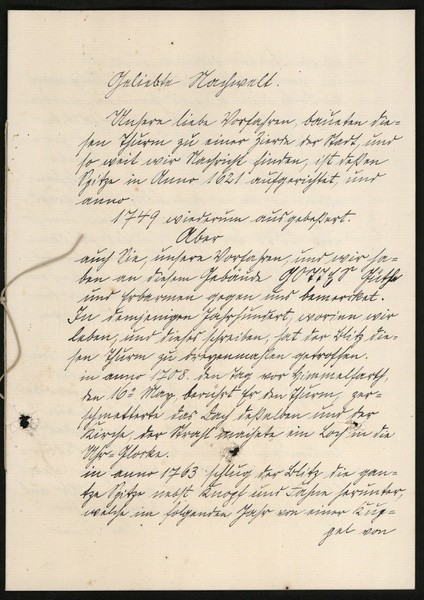 Geliebte Nachwelt.
Unsere liebe Vorfahren, baueten die-
sen Thurm zu einer Zierde der Stadt, und
so weit wir Nachricht finden, ist deßen
Spitze in Anno 1621 aufgerichtet, und
anno
1749 wiederum ausgebeßert.
Aber
auch Sie, unsere Vorfahren, und wir ha-
ben an diesem Gebäude GOTTES Güthe
und Erbarmen gegen uns bemerket.
In demjenigen Jahrhundert, worinn wir
leben, und dieses schreiben, hat der Blitz die-
sen Thurm zu dreyenmahlen getroffen.
in anno 1708. den Tag vor Himmelfarth,
den 16ᵗ May, berührt Er den Thurm, zer-
schmetterte das Dach deßelben und der
Kirche, der Strahl machete ein Loch in die
Uhr-Glocke.
in anno 1763 schlug der Blitz die gan-
tze Spitze nebst Knopf und Fahne herunter,
welche im folgenden Jahr von einer Kup-
pel von